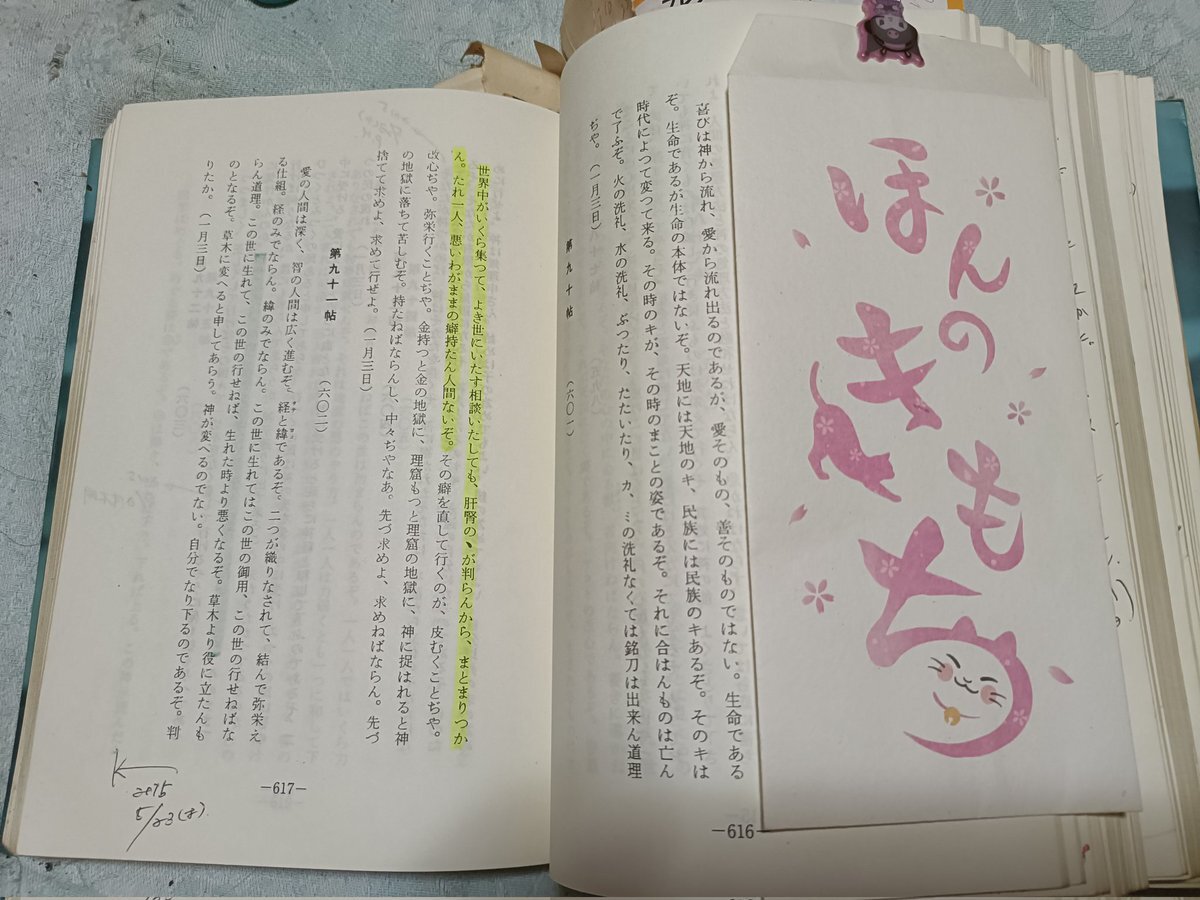 ほんの
きもち
喜びは神から流れ、愛から流れ出るのであるが、愛そのもの、善そのものではない。生命である
ぞ。生命であるが生命の本体ではないぞ。天地には天地のキ、民族には民族のキあるぞ。そのキは
時代によつて変つて来る。その時のキが、その時のまことの姿であるぞ。それに合はんものは亡ん
で了ふぞ。火の洗礼、水の洗礼、ぶつたり、たたいたり、カ、ミの洗礼なくては銘刀は出来ん道理
ぢや。(一月三日)
第九十帖 (六〇一)
—616—
世界中がいくら集つて、よき世にいたす相談いたしても、肝腎のヽが判らんから、まとまりつか
ん。たれ一人、悪いわがままの癖持たん人間ないぞ。その癖を直して行くのが、皮むくことぢや。
改心ぢや。弥栄行くことぢや。金持つと金の地獄に、理窟もつと理窟の地獄に、神に捉はれると神
の地獄に落ちて苦しむぞ。持たねばならんし、中々ぢやなあ。先づ求めよ、求めねばならん。先づ
捨てて求めよ、求めて行ぜよ。(一月三日)
第九十一帖 (六〇二)
愛の人間は深く、智の人間は広く進むぞ。経と緯であるぞ。二つが織りなされて、結んで弥栄え
る仕組。経のみでならん。緯のみでならん。この世に生れてはこの世の御用、この世の行せねばな
らん道理。この世に生れて、この世の行せねば、生れた時より悪くなるぞ。草木より役に立たんも
のとなるぞ。草木に変へると申してあらう。神が変へるのでない。自分でなり下るのであるぞ。判
りたか。(一月三日)
—617—
5/23